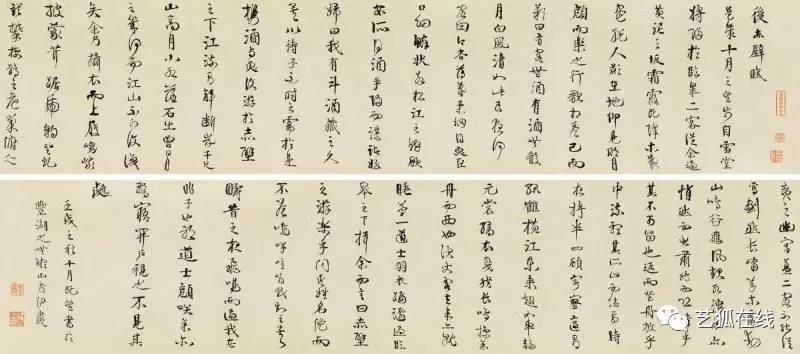 後赤壁賦
是歲十月之望步自雪堂
將歸於臨皋二客從余過
黃泥之坂霜露既降木葉
盡脫人影在地仰見明月
顧而樂之行歌相答已而
歎曰有客無酒有酒無殽
月白風清如此良夜何
客曰今者薄暮舉網得魚巨
口細鱗狀如松江之鱸顧
安所得酒乎歸而謀諸婦
婦曰我有斗酒藏之久
矣以待子不時之需於是
攜酒與魚復游於赤壁
之下江流有聲斷岸千尺
山高月小水落石出曾日月
之幾何而江山不可復識
矣余乃攝衣而上履巉巖
披蒙茸踞虎豹登虬
龍攀棲鶻之危巢俯馮
夷之幽宮蓋二客不能從
焉劃然長嘯草木震動
山鳴谷應風起水涌余亦
悄然而悲肅然而恐凜乎
其不可留也返而登舟放乎
中流聽其所止而休焉時
夜將半四顧寂寥適有
孤鶴橫江東來翅如車輪
元裳縞衣戛然長鳴掠余
舟而西也須臾客去余亦就
睡夢一道士羽衣蹁躚過臨
皋之下揖余而言曰赤壁
之游樂乎問其姓名俛而
不答嗚呼噫嘻我知之矣
疇昔之夜飛鳴而過我者
非子也耶道士顧笑余亦
驚寤開戶視之不見其
處
壬戌之秋十月既望書於
豐湖之
艺狐在线